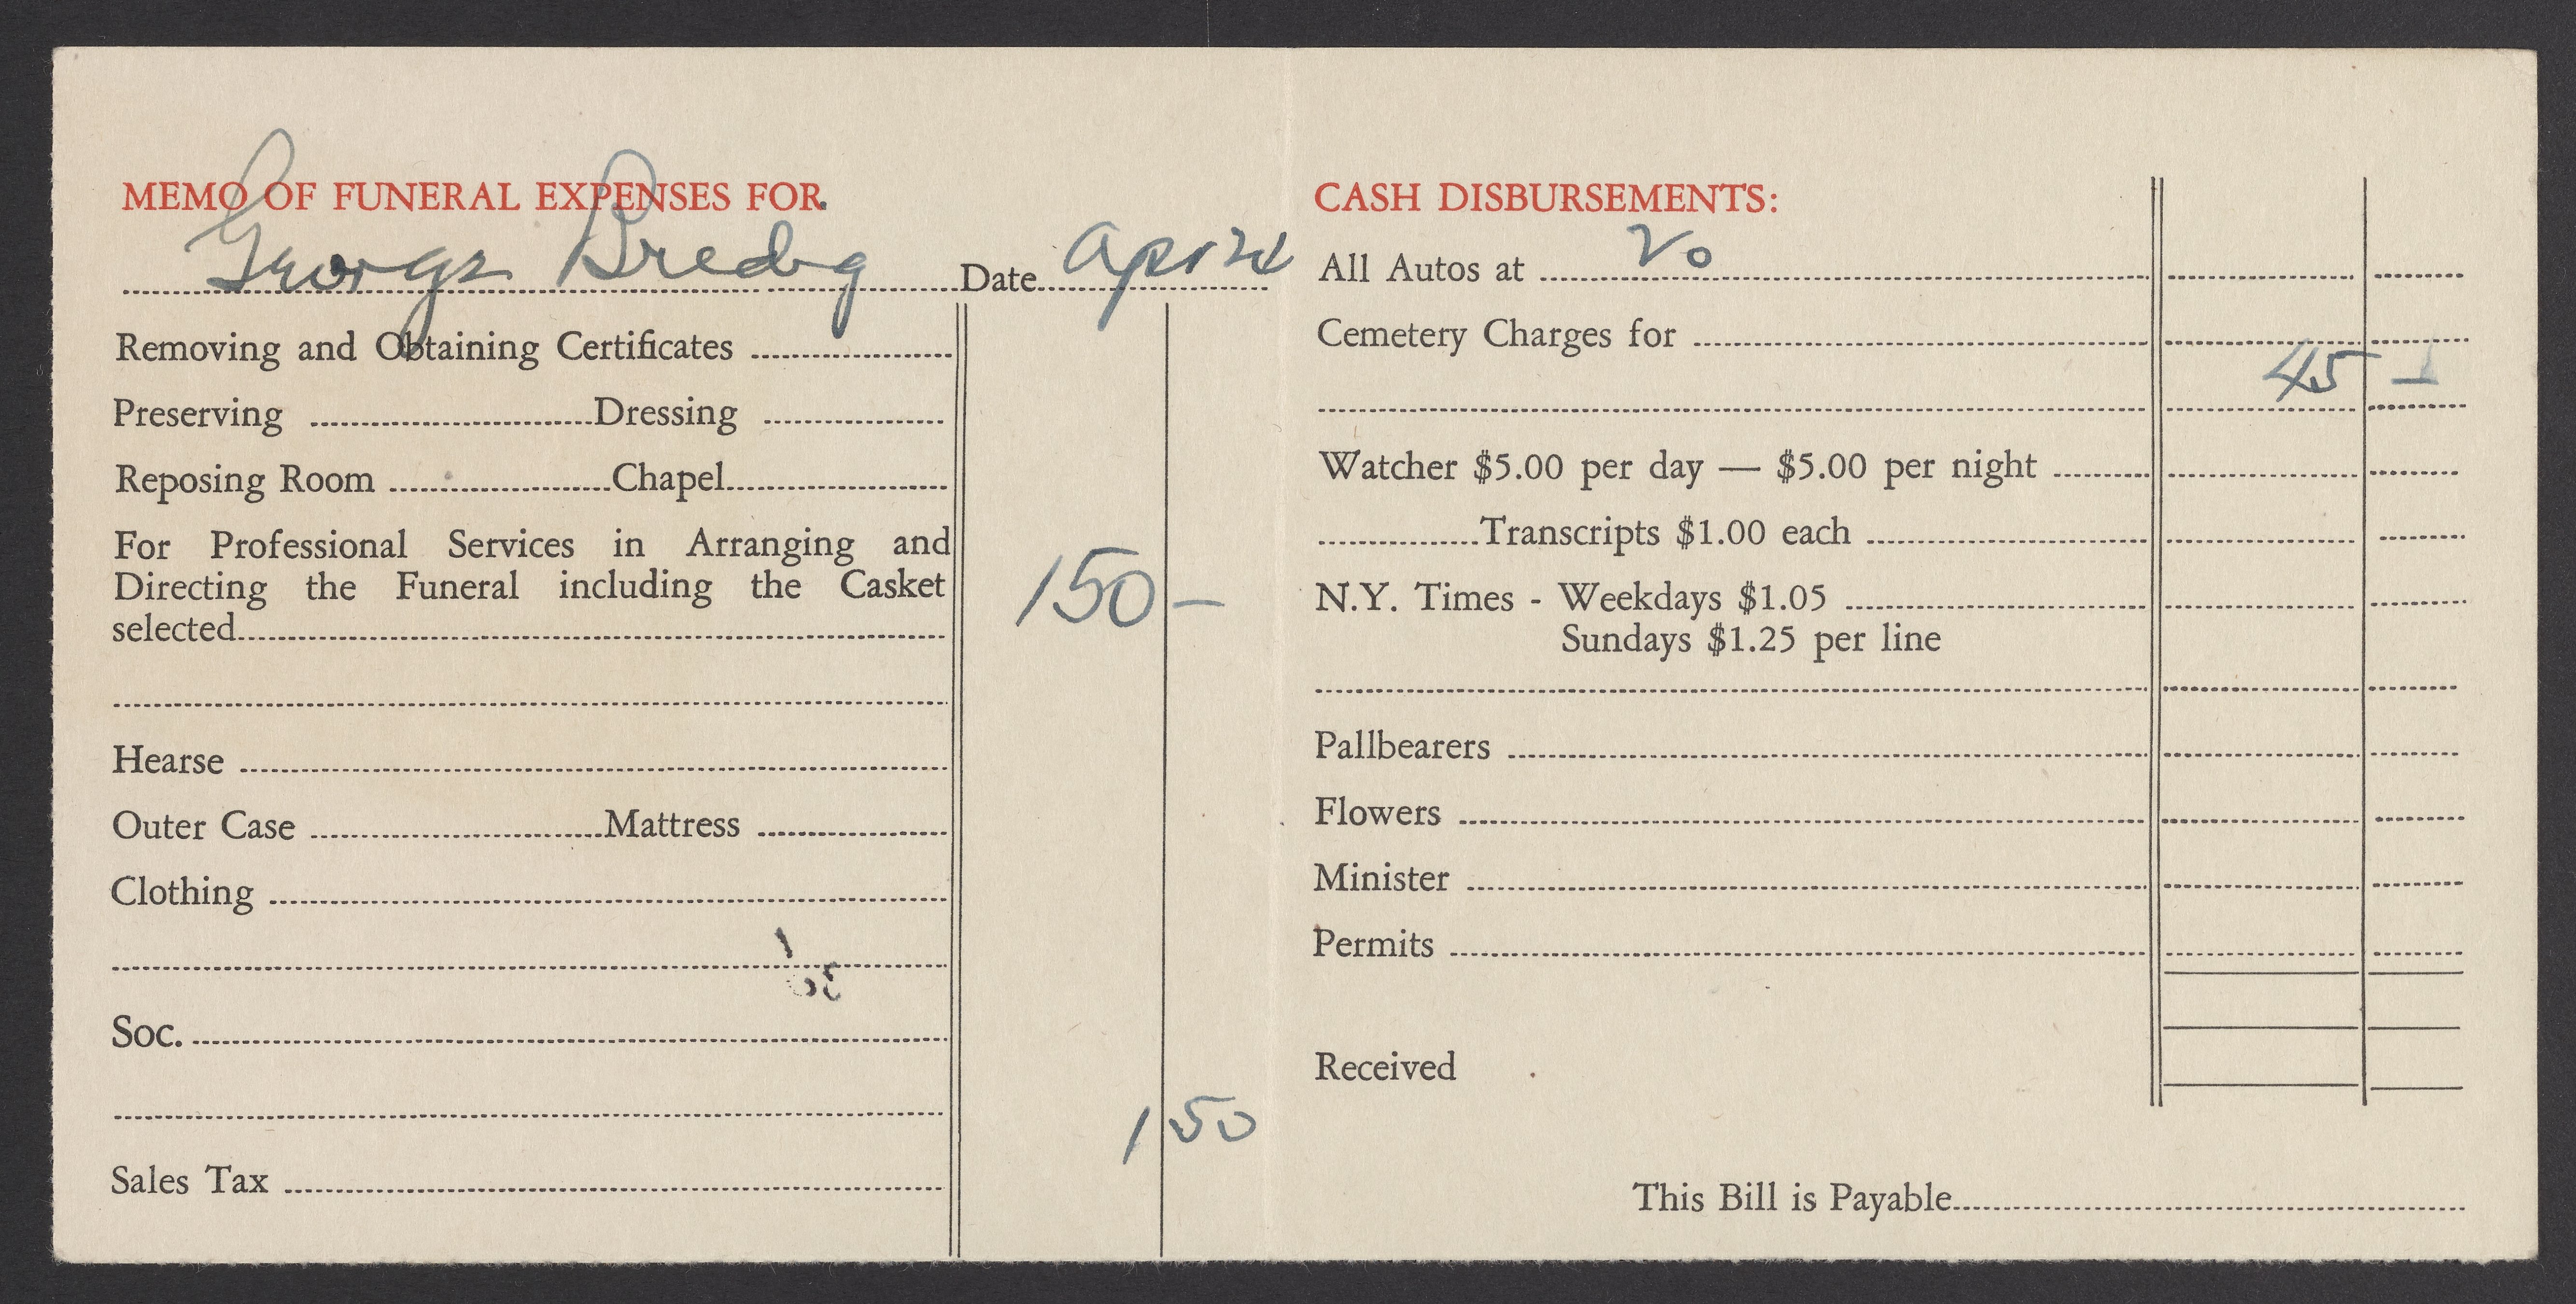 MEMO OF FUNERAL EXPENSES FOR.
George Bredig Date April 24
Removing and Obtaining Certificates
Preserving Dressing
Reposing Room Chapel
For Professional Services in Arranging and
Directing the Funeral including the Casket
selected 150 –
Hearse
Outer Case Mattress
Clothing
Soc.
1 50
Sales Tax
CASH DISBURSEMENTS:
All Autos at 20
Cemetery Charges for
45 –
Watcher $5.00 per day — $5.00 per night
Transcripts $1.00 each
N.Y. Times - Weekdays $1.05
Sundays $1.25 per line
Pallbearers
Flowers
Minister
Permits
Received
This Bill is Payable